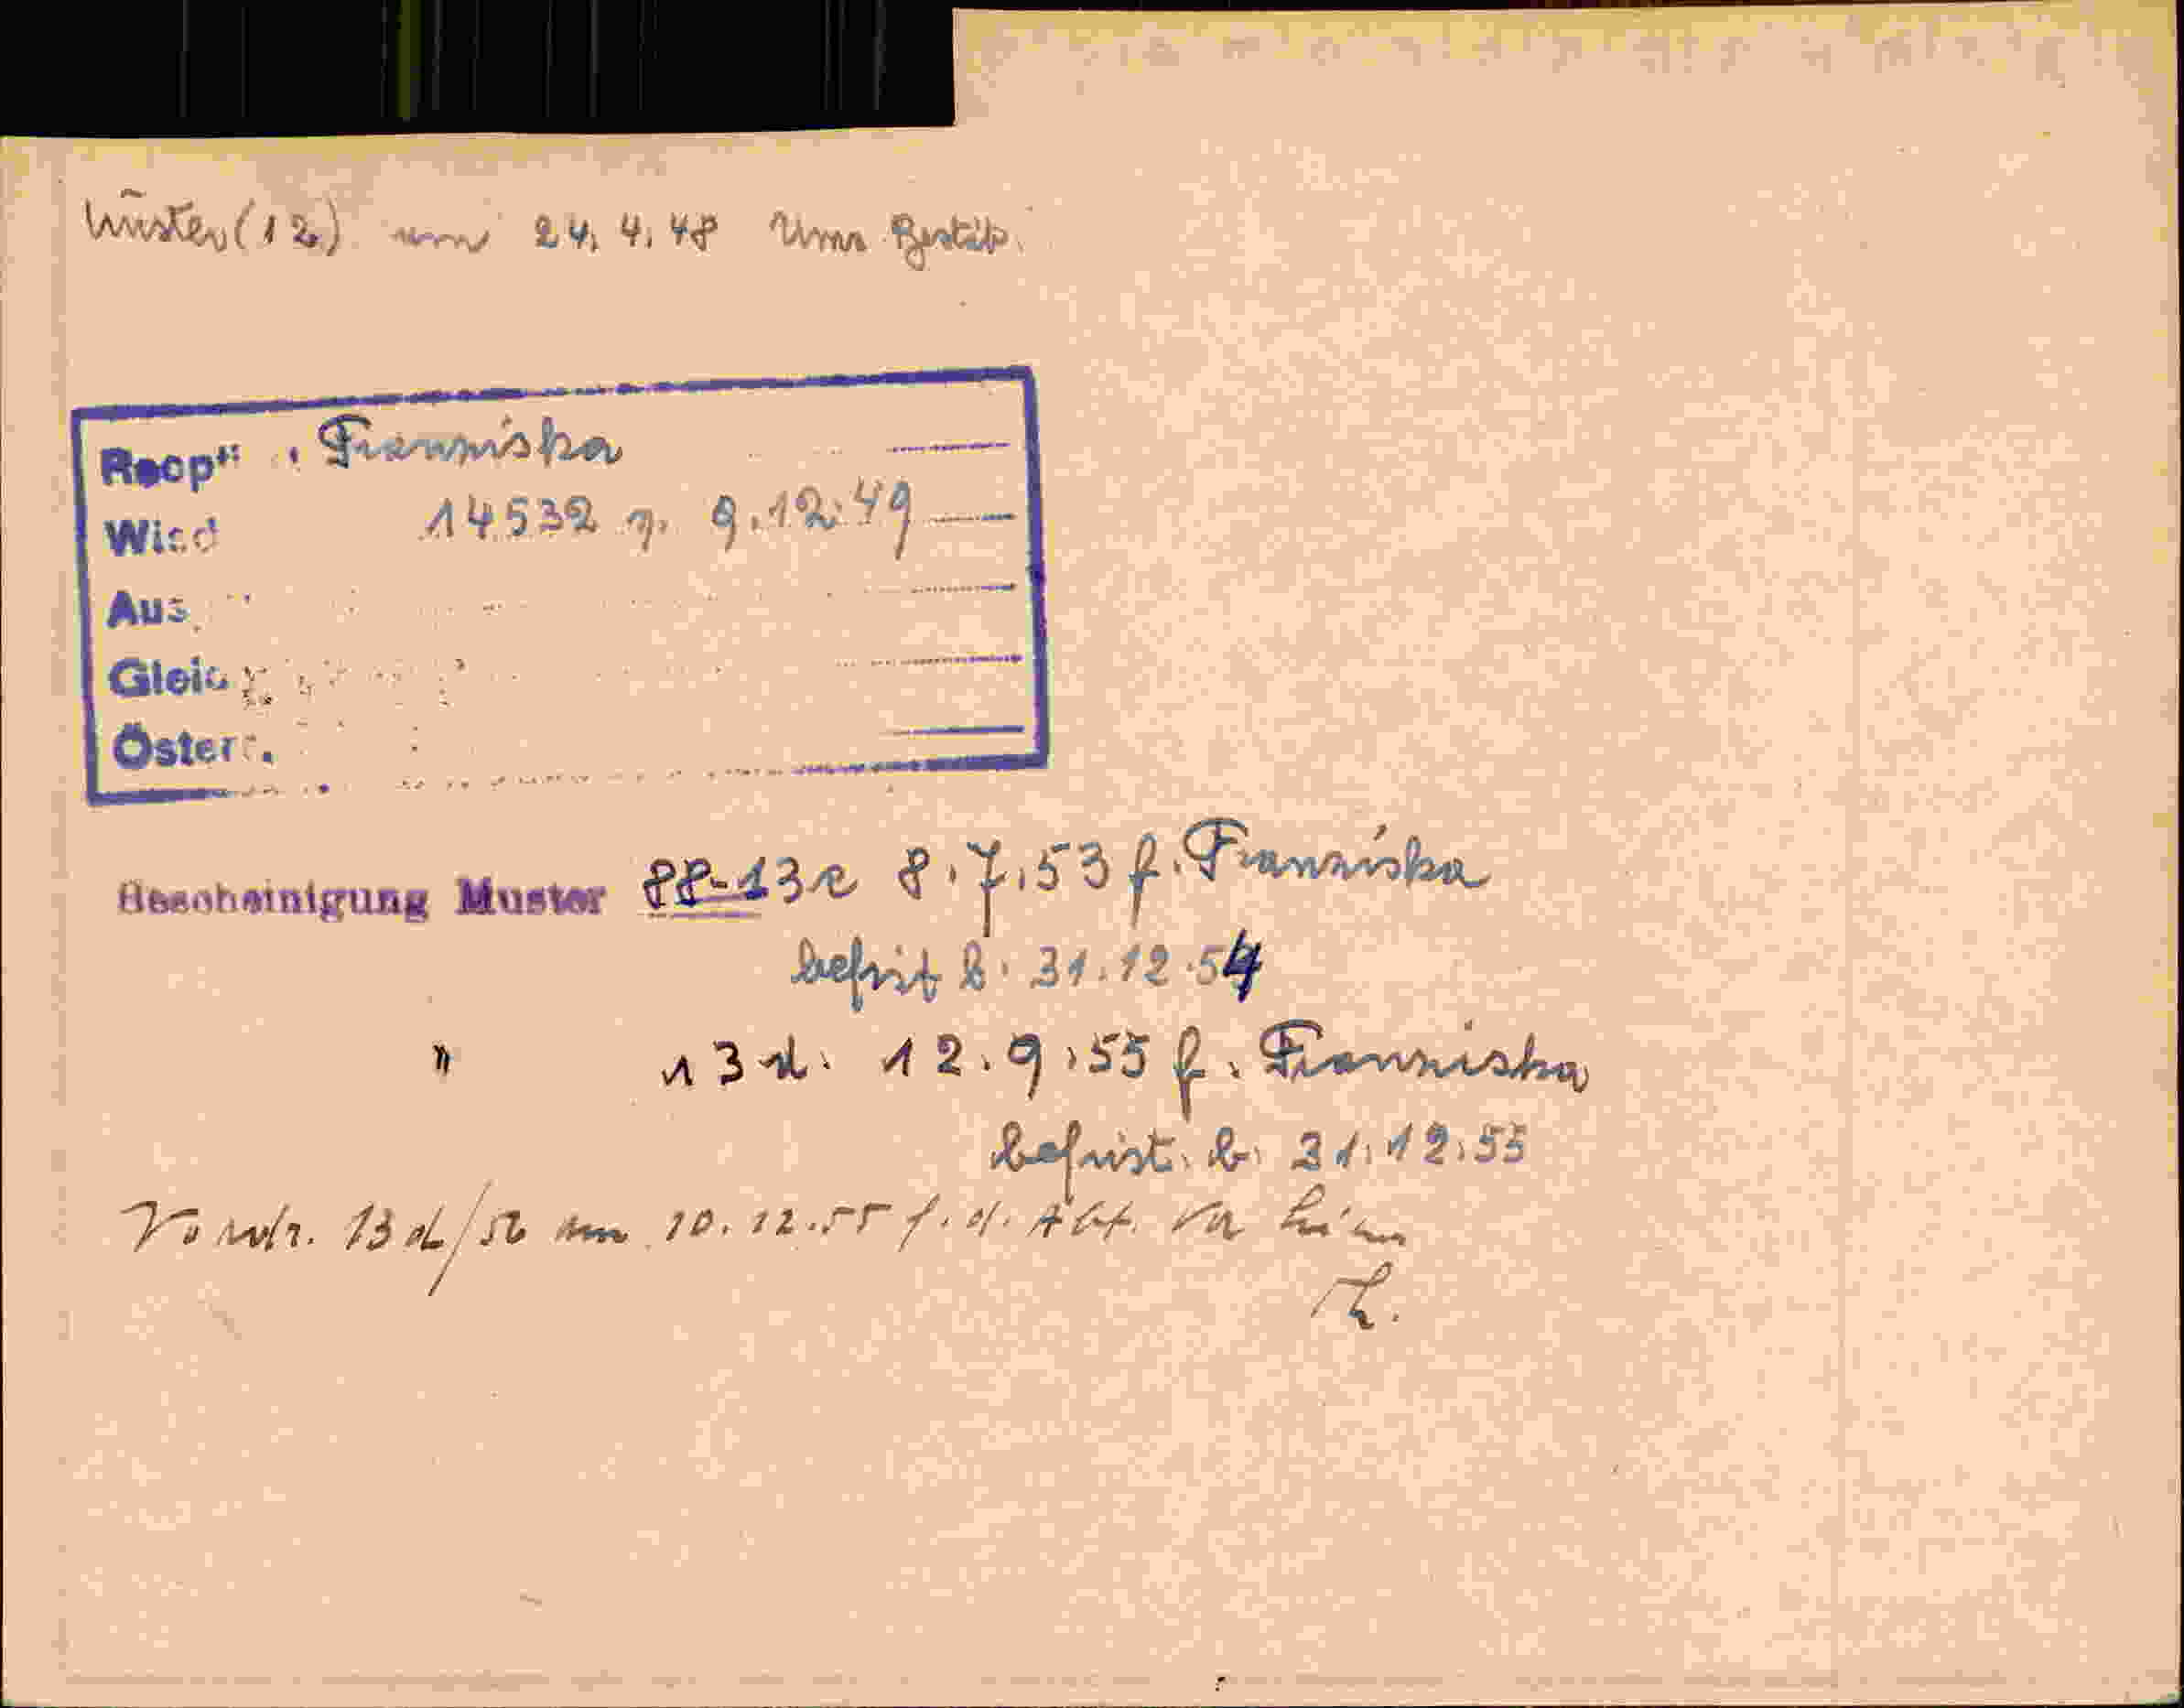 Muster (12) vom 24.4.48
Reopt. Franziska
Wied 14532 v. 9.12.49
Aus
Gleic
Österr.
Bescheinigung Muster 13c 8.7.53 f. Franziska
befrist b. 31.12.54
" 13d. 12.9.55 f. Franziska
befrist. b. 31.12.55
13 d/52 am 10.12.55 f. d.